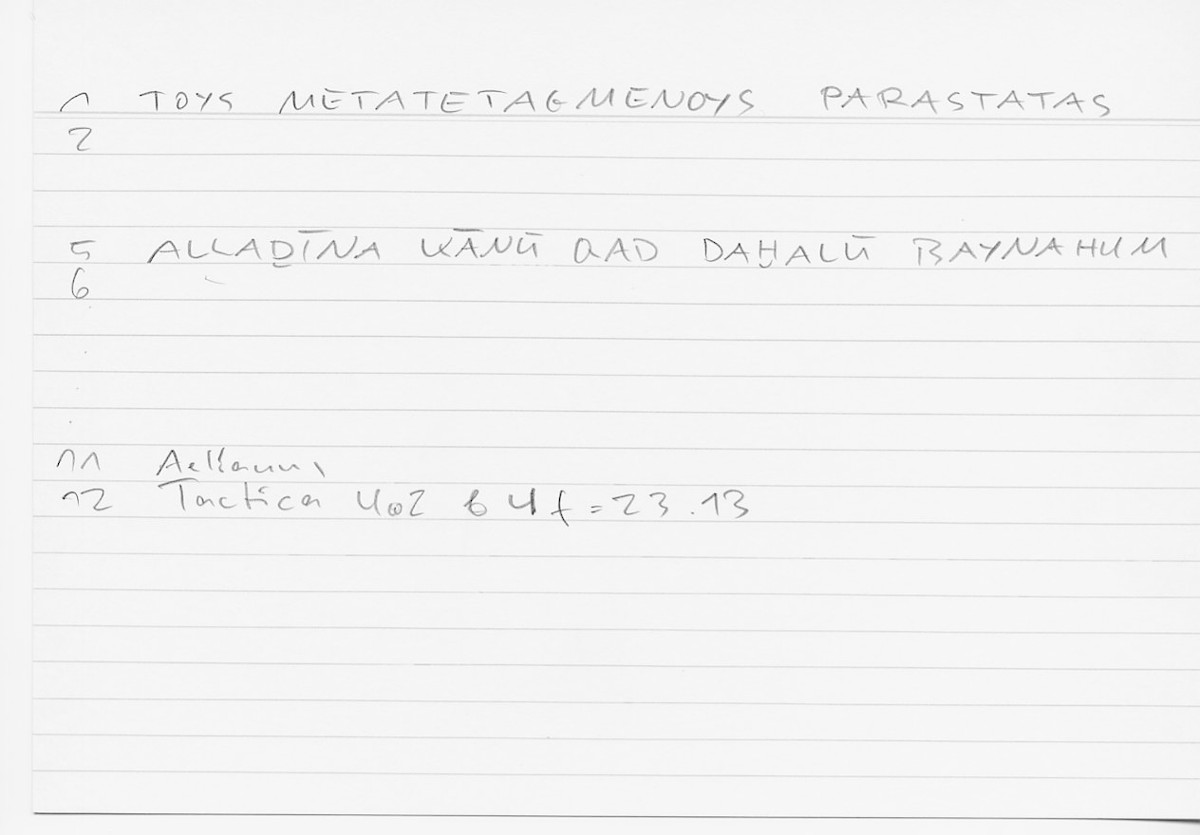 1 TOYS METATETAGMENOYS PARASTATAS
2
5 ALLAḎĪNA KĀNŪ QAD DAḪALŪ BAYNAHUM
6
11 Aelianus,
12 Tactica 402 b 4 f = 23.13